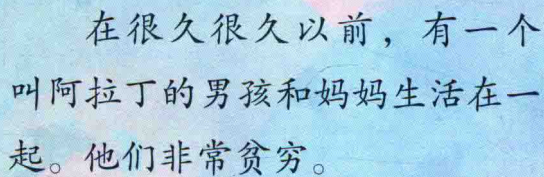 在很久很久以前，有一个
叫阿拉丁的男孩和妈妈生活在一
起。他们非常贫穷。